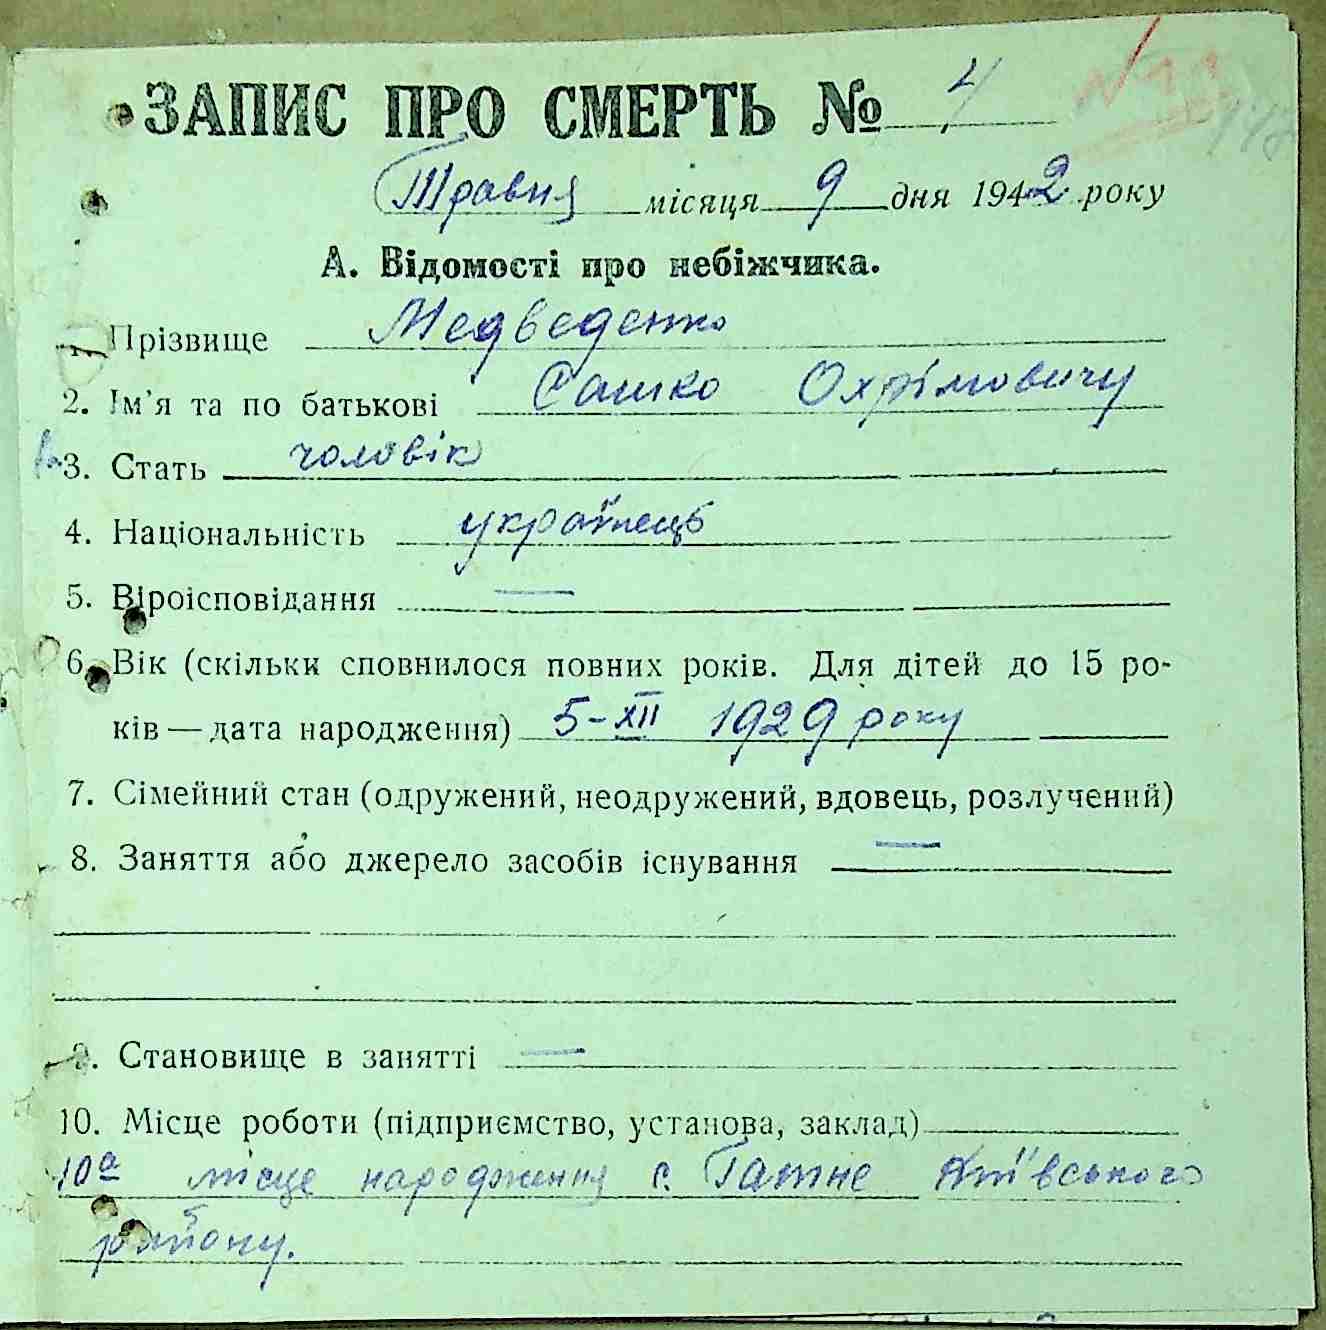 ЗАПИС ПРО СМЕРТЬ № 4
Травня місяця 9 дня 1942 року
А. Відомості про небіжчика.
1. Прізвище Медведенко
2. Ім'я та по батькові Сашко Охрімовичу
3. Стать чоловік
4. Національність українець
5. Віроісповідання —
6. Вік (скільки сповнилося повних років. Для дітей до 15 ро-
ків — дата народження) 5-XII 1929 року
7. Сімейний стан (одружений, неодружений, вдовець, розлучений)
8. Заняття або джерело засобів існування —
9. Становище в занятті —
10. Місце роботи (підприємство, установа, заклад)
10а місце народження с. Гатне Київського
району.